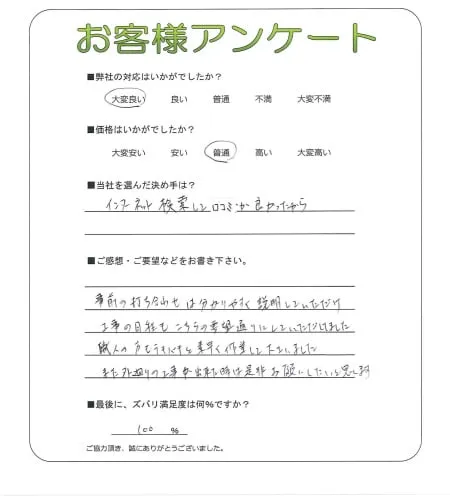 お客様アンケート
■弊社の対応はいかがでしたか？
大変良い 良い 普通 不満 大変不満
■価格はいかがでしたか？
大変安い 安い 普通 高い 大変高い
■当社を選んだ決め手は？
インターネット検索して口コミが良かったから
■ご感想・ご要望などをお書き下さい。
事前の打ち合わせは分かりやすく説明していただけ
工事の日程もこちらの要望通りにしていただけました
職人の方も テキパキと素早く作業して下さいました
また外廻りの工事が出来た時は是非お願いしたいと思います
■最後に、ズバリ満足度は何％ですか？
100 %
ご協力頂き、誠にありがとうございました。